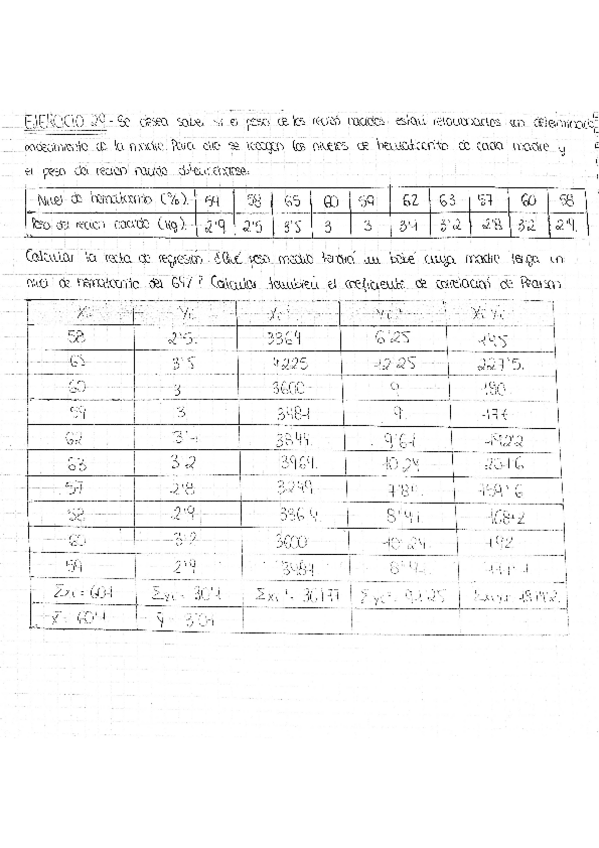 EJERCICIO 29.- Se desea saber si el peso de los recién nacidos están relacionados un determinado
de la madre. Para ello se recogen los niveles de hematocrito de cada madre y
el peso del recién nacido
Nivel de hematocrito (%) 59 58 65 60 59 62 63 57 60 58
Peso del recién nacido (kg) 2'9 2'5 3'5 3 3 3'1 3'2 2'8 3'2 2'9
Calcular la recta de regresión. ¿Qué peso medio tendrá un bebé cuya madre tenga un
nivel de hematocrito del 64%? Calcular también el coeficiente de correlación de Pearson
Xi Yi Xi² Yi² Xi Yi
58 2'5 3364 6'25 145
65 3'5 4225 12'25 227'5
60 3 3600 9 180
59 3 3481 9 177
62 3'1 3844 9'61 192'2
63 3'2 3969 10'24 201'6
57 2'8 3249 7'84 159'6
58 2'9 3364 8'41 168'2
60 3'2 3600 10'24 192
59 2'9 3481 8'41
Σxi = 601 Σyi = 30'1 Σxi² = 36177
x̄ = 60'1 ȳ = 3'01